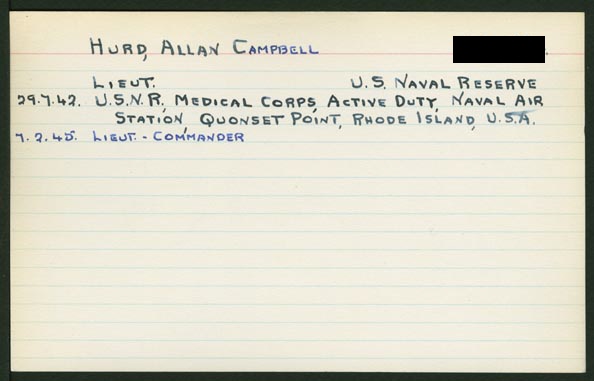 HURD, ALLAN CAMPBELL
LIEUT. U.S. NAVAL RESERVE
29.7.42. U.S.N.R., MEDICAL CORPS, ACTIVE DUTY, NAVAL AIR
STATION, QUONSET POINT, RHODE ISLAND, U.S.A.
7.2.45. LIEUT.-COMMANDER